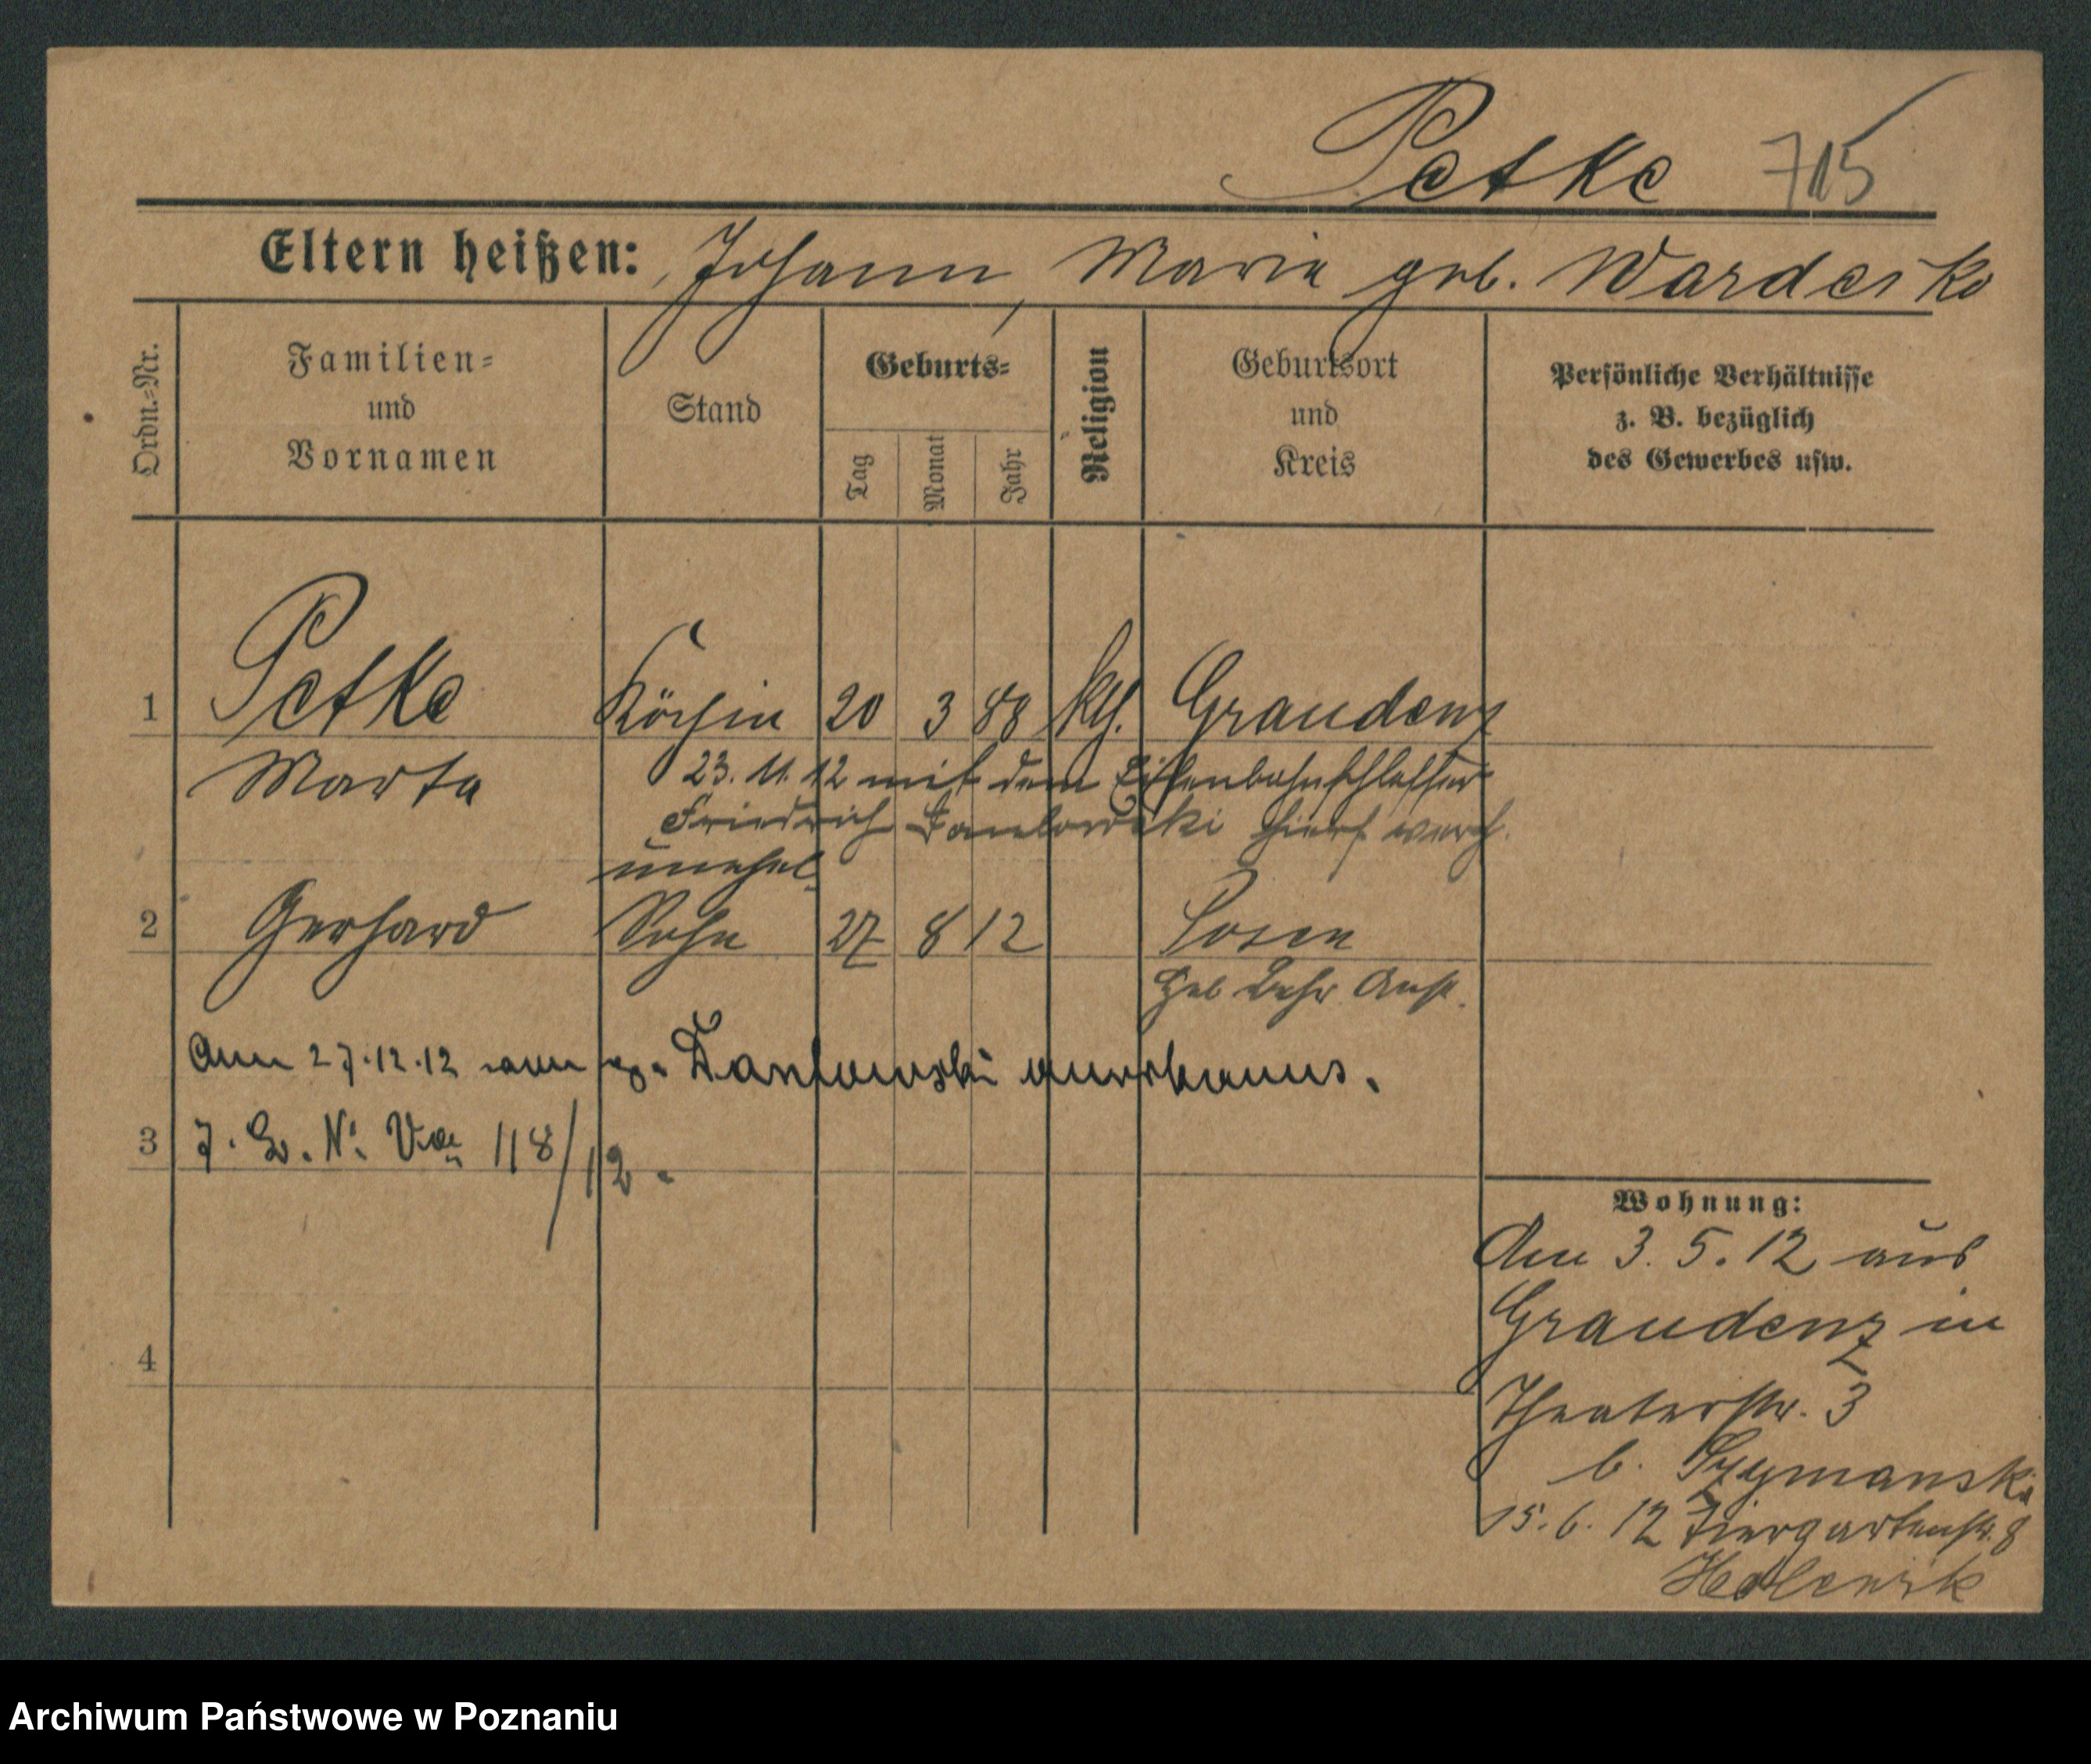 Petke 715
Eltern heißen: Johann, Marie geb. Wardeski
Ordn.=Nr.
Familien=
und
Vornamen
Stand
Geburts=
Tag
Monat
Jahr
Religion
Geburtsort
und
Kreis
Persönliche Verhältnisse
z. B. bezüglich
des Gewerbes usw.
1 Petke Köchin 20 3 88 kth. Graudenz
Marta 23. 11. 12 mit dem Eisenbahnschlosser
Friedrich hier verh.
unehel.
2 Gerhard Sohn 27 8 12 Posen
Heb Lehr Anst.
Am 27.12.12 vom anerkannt.
3 J. No. 118/12.
4
Wohnung:
Am 3. 5. 12 aus
Graudenz in
Theaterstr. 3
b. Szymanski
15. 6. 12 Tiergartenstr. 8
Archiwum Państwowe w Poznaniu